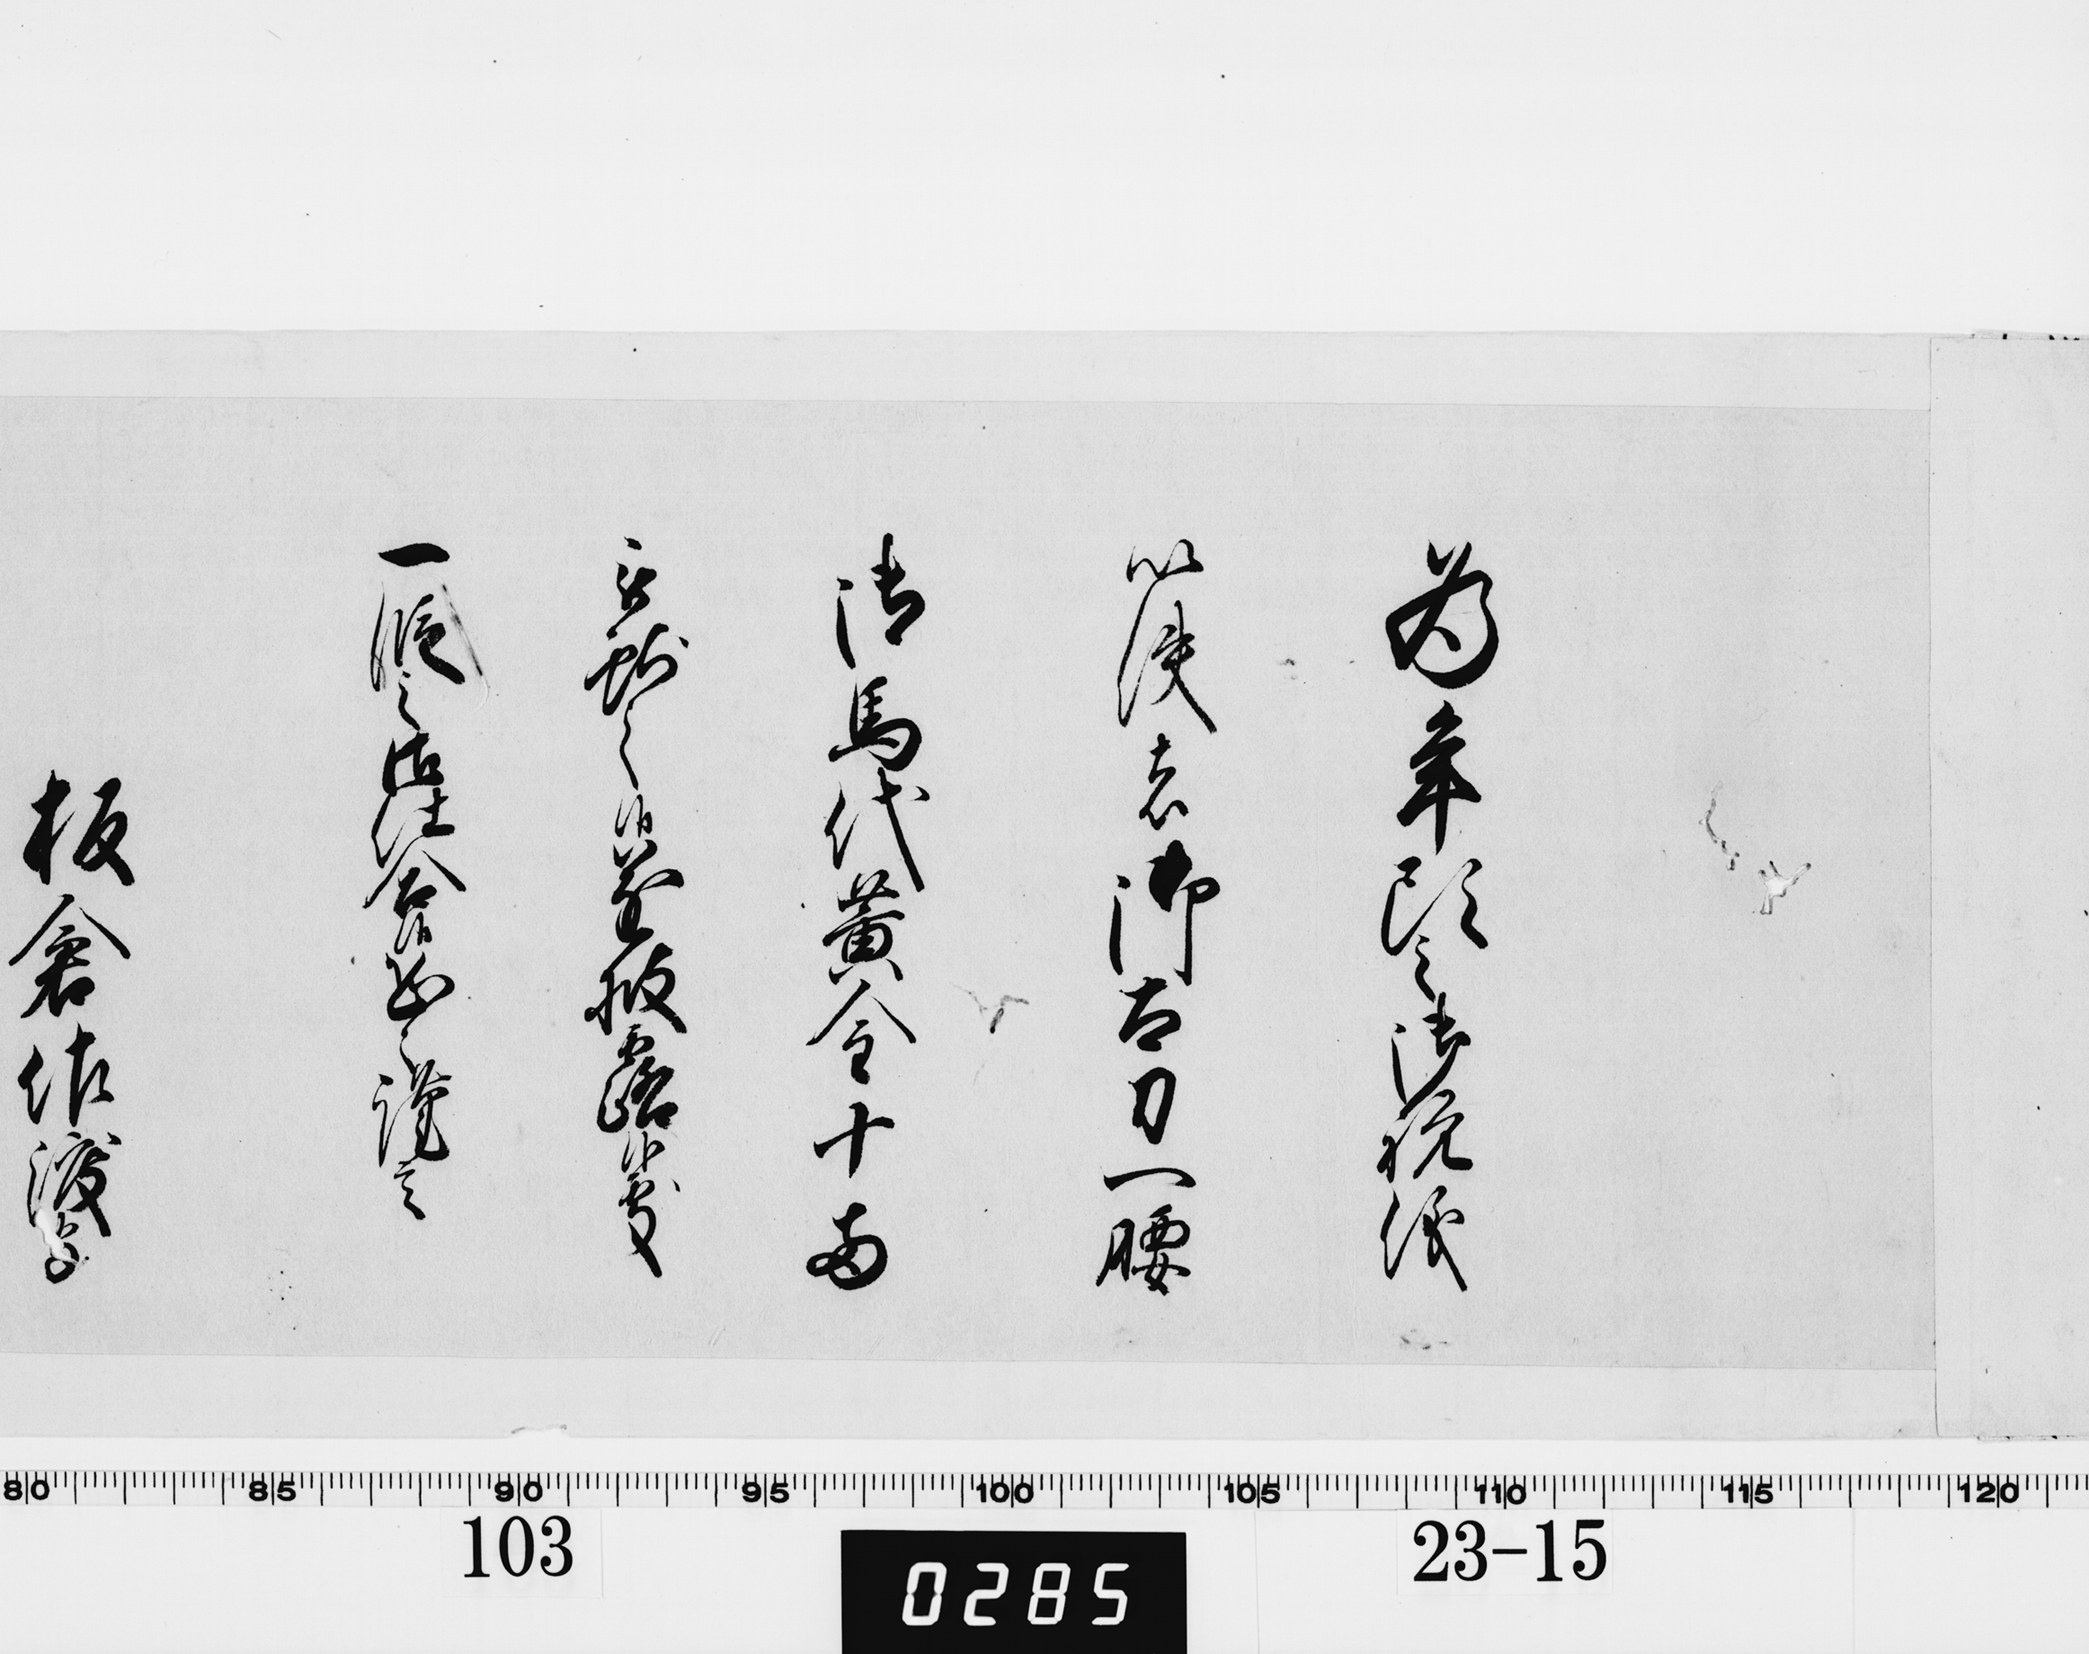 為年頭之御祝儀
以使者御太刀一腰
御馬代黄金十両
被献之候遂披露候処
一段之御仕合候恐々謹言
板倉佐渡守
80 85 90 95 100 105 110 115 120
103
0285
23-15